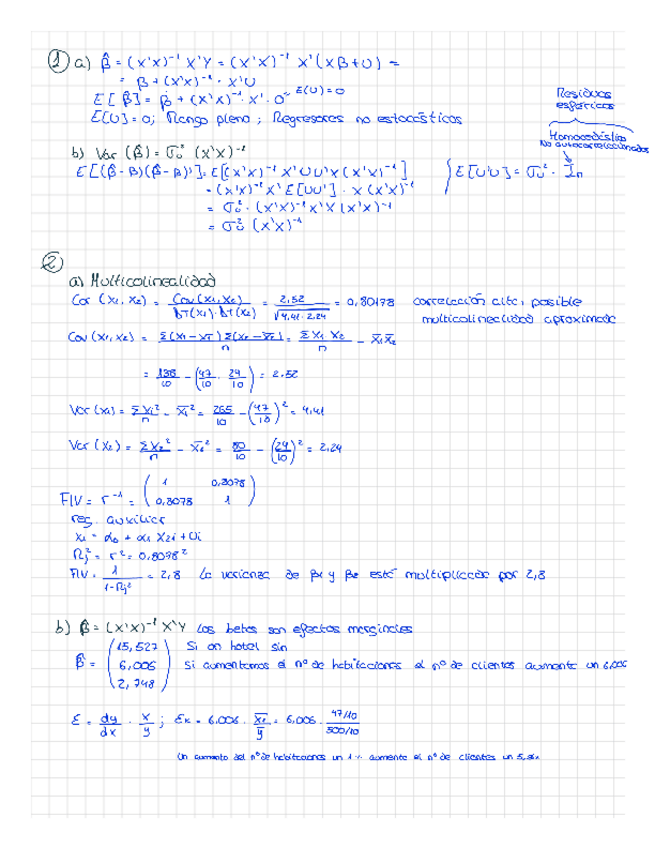 1 a) β̂ = (X'X)⁻¹ X'Y = (X'X)⁻¹ X'(Xβ+U) =
= β + (X'X)⁻¹ · X'U
E[β̂] = β + (X'X)⁻¹ · X' · 0 E(U)=0
E[U]=0; Rango pleno; Regresores no estocásticos
Residuos
esféricos
Homocedástico
No autocorrelacionados
b) Var (β̂) = σᵤ² (X'X)⁻¹
E[(β̂-β)(β̂-β)'] = E[(X'X)⁻¹ X'UU'X(X'X)⁻¹]
E[UU'] = σᵤ² · In
= (X'X)⁻¹ X' E[UU'] · X (X'X)⁻¹
= σᵤ² · (X'X)⁻¹ X'X (X'X)⁻¹
= σᵤ² (X'X)⁻¹
2
a) Multicolinealidad
Cor (X₁, X₂) = Cov(X₁,X₂) / DT(X₁)·DT(X₂) = 2,52 / √4,41·2,24 = 0,80178 correlación alta, posible
multicolinealidad aproximada
Cov (X₁, X₂) = Σ(X₁-X̄₁)Σ(X₂-X̄₂) / n = ΣX₁X₂ / n - X̄₁X̄₂
= 138/10 - (47/10 · 24/10) = 2.52
Var (X₁) = ΣX₁²/n - X̄₁² = 265/10 - (47/10)² = 4,41
Var (X₂) = ΣX₂²/n - X̄₂² = 80/10 - (24/10)² = 2,24
FIV = r⁻¹ = (1 0,8078
0,8078 1)
reg. auxiliar
X₁ = α₀ + α₁ X₂ᵢ + Uᵢ
Rⱼ² = r² = 0,8078²
FIV = 1 / 1-Rⱼ² = 2,8 La varianza de β₁ y β₂ está multiplicada por 2,8
b) β̂ = (X'X)⁻¹ X'Y Los betas son efectos marginales
β̂ = (15,527 Si un hotel sin
6,006 Si aumentamos el nº de habitaciones el nº de clientes aumenta un 6,006
2,748)
ε = dy/dx · x/y ; εx = 6,006 · X̄₁/ȳ = 6,006 · 47/10 / 500/10
Un aumento del nº de habitaciones un 1% aumenta el nº de clientes un